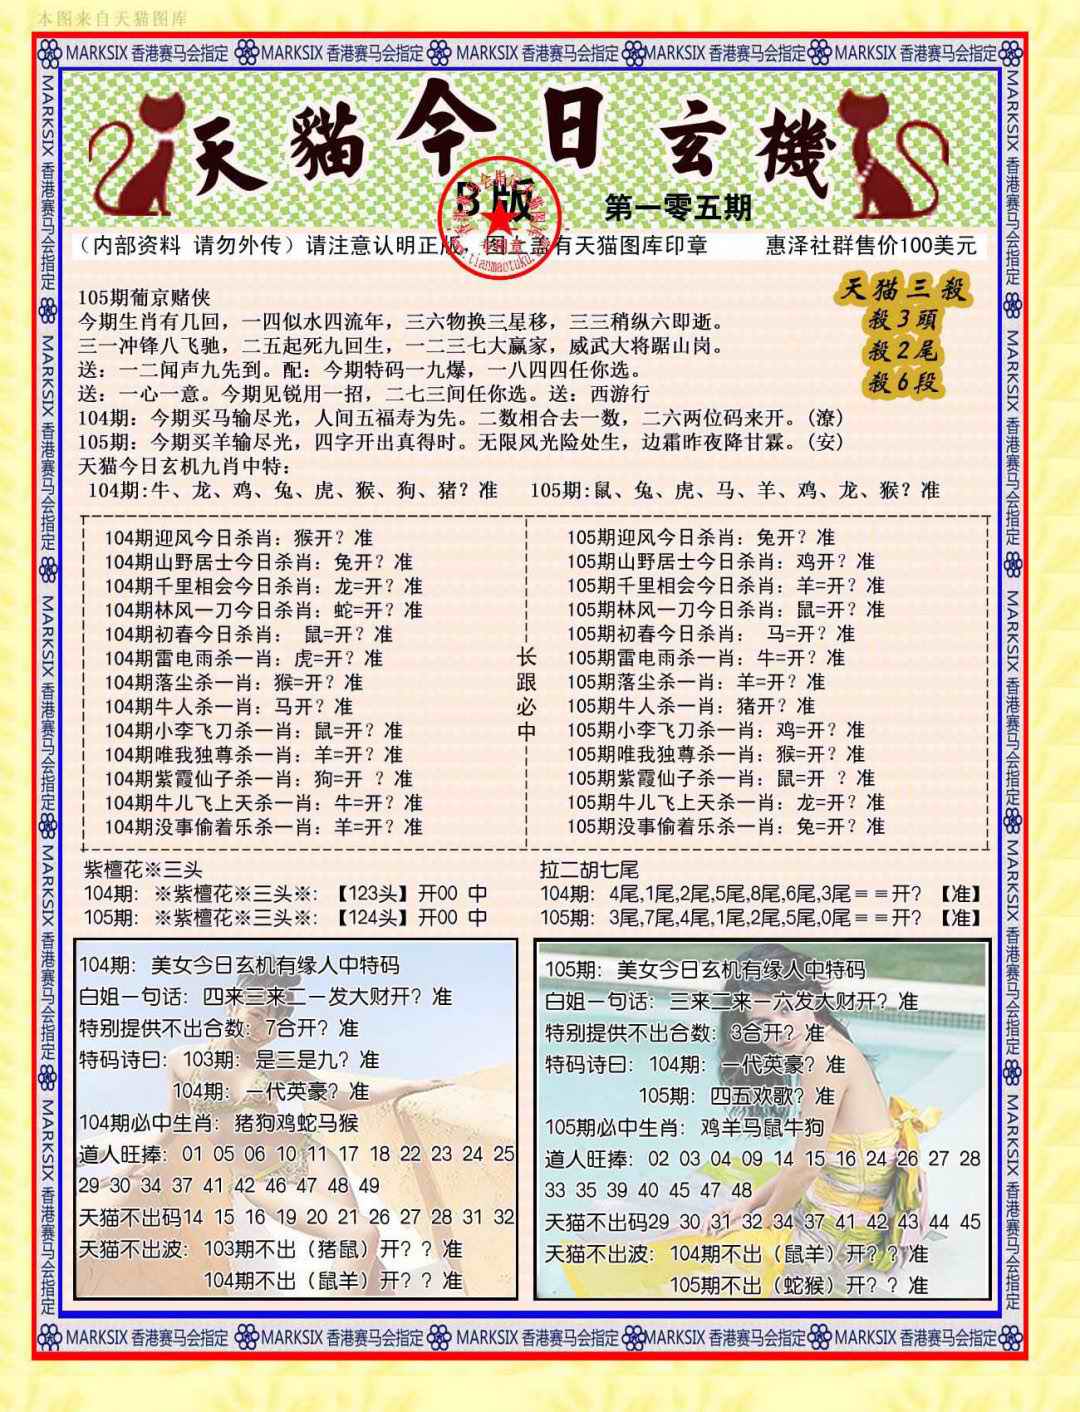 本图来自天猫图库
MARKSIX 香港赛马会指定 MARKSIX 香港赛马会指定 MARKSIX 香港赛马会指定 MARKSIX 香港赛马会指定 MARKSIX 香港赛马会指定
天貓今日玄機
B版
第一零五期
（内部资料 请勿外传）请注意认明正版，图上盖有天猫图库印章 惠泽社群售价100美元
天猫三殺
殺3頭
殺2尾
殺6段
105期葡京赌侠
今期生肖有几回，一四似水四流年，三六物换三星移，三三稍纵六即逝。
三一冲锋八飞驰，二五起死九回生，一二三七大赢家，威武大将踞山岗。
送：一二闻声九先到。配：今期特码一九爆，一八四四任你选。
送：一心一意。今期见锐用一招，二七三间任你选。送：西游行
104期：今期买马输尽光，人间五福寿为先。二数相合去一数，二六两位码来开。(潦)
105期：今期买羊输尽光，四字开出真得时。无限风光险处生，边霜昨夜降甘霖。(安)
天猫今日玄机九肖中特：
104期:牛、龙、鸡、兔、虎、猴、狗、猪？准 105期:鼠、兔、虎、马、羊、鸡、龙、猴？准
104期迎风今日杀肖：猴开？准
104期山野居士今日杀肖：兔开？准
104期千里相会今日杀肖：龙=开？准
104期林风一刀今日杀肖：蛇=开？准
104期初春今日杀肖： 鼠=开？准
104期雷电雨杀一肖：虎=开？准
104期落尘杀一肖：猴=开？准
104期牛人杀一肖：马开？准
104期小李飞刀杀一肖：鼠=开？准
104期唯我独尊杀一肖：羊=开？准
104期紫霞仙子杀一肖：狗=开 ？准
104期牛儿飞上天杀一肖：牛=开？准
104期没事偷着乐杀一肖：羊=开？准
长跟必中
105期迎风今日杀肖：兔开？准
105期山野居士今日杀肖：鸡开？准
105期千里相会今日杀肖：羊=开？准
105期林风一刀今日杀肖：鼠=开？准
105期初春今日杀肖： 马=开？准
105期雷电雨杀一肖：牛=开？准
105期落尘杀一肖：羊=开？准
105期牛人杀一肖：猪开？准
105期小李飞刀杀一肖：鸡=开？准
105期唯我独尊杀一肖：猴=开？准
105期紫霞仙子杀一肖：鼠=开 ？准
105期牛儿飞上天杀一肖：龙=开？准
105期没事偷着乐杀一肖：兔=开？准
紫檀花※三头
104期：※紫檀花※三头※：【123头】开00 中
105期：※紫檀花※三头※：【124头】开00 中
拉二胡七尾
104期：4尾,1尾,2尾,5尾,8尾,6尾,3尾＝＝开？【准】
105期：3尾,7尾,4尾,1尾,2尾,5尾,0尾＝＝开？【准】
104期：美女今日玄机有缘人中特码
白姐一句话：四来三来二一发大财开？准
特别提供不出合数：7合开？准
特码诗曰：103期：是三是九？准
104期：一代英豪？准
104期必中生肖：猪狗鸡蛇马猴
道人旺捧：01 05 06 10 11 17 18 22 23 24 25
29 30 34 37 41 42 46 47 48 49
天猫不出码14 15 16 19 20 21 26 27 28 31 32
天猫不出波：103期不出（猪鼠）开？？准
104期不出（鼠羊）开？？准
105期：美女今日玄机有缘人中特码
白姐一句话：三来二来一六发大财开？准
特别提供不出合数：3合开？准
特码诗曰：104期：一代英豪？准
105期：四五欢歌？准
105期必中生肖：鸡羊马鼠牛狗
道人旺捧：02 03 04 09 14 15 16 24 26 27 28
33 35 39 40 45 47 48
天猫不出码29 30 31 32 34 37 41 42 43 44 45
天猫不出波：104期不出（鼠羊）开？？准
105期不出（蛇猴）开？？准
MARKSIX 香港赛马会指定 MARKSIX 香港赛马会指定 MARKSIX 香港赛马会指定 MARKSIX 香港赛马会指定
MARKSIX 香港赛马会指定 MARKSIX 香港赛马会指定 MARKSIX 香港赛马会指定 MARKSIX 香港赛马会指定 MARKSIX 香港赛马会指定
MARKSIX 香港赛马会指定 MARKSIX 香港赛马会指定 MARKSIX 香港赛马会指定 MARKSIX 香港赛马会指定 MARKSIX 香港赛马会指定
MARKSIX 香港赛马会指定